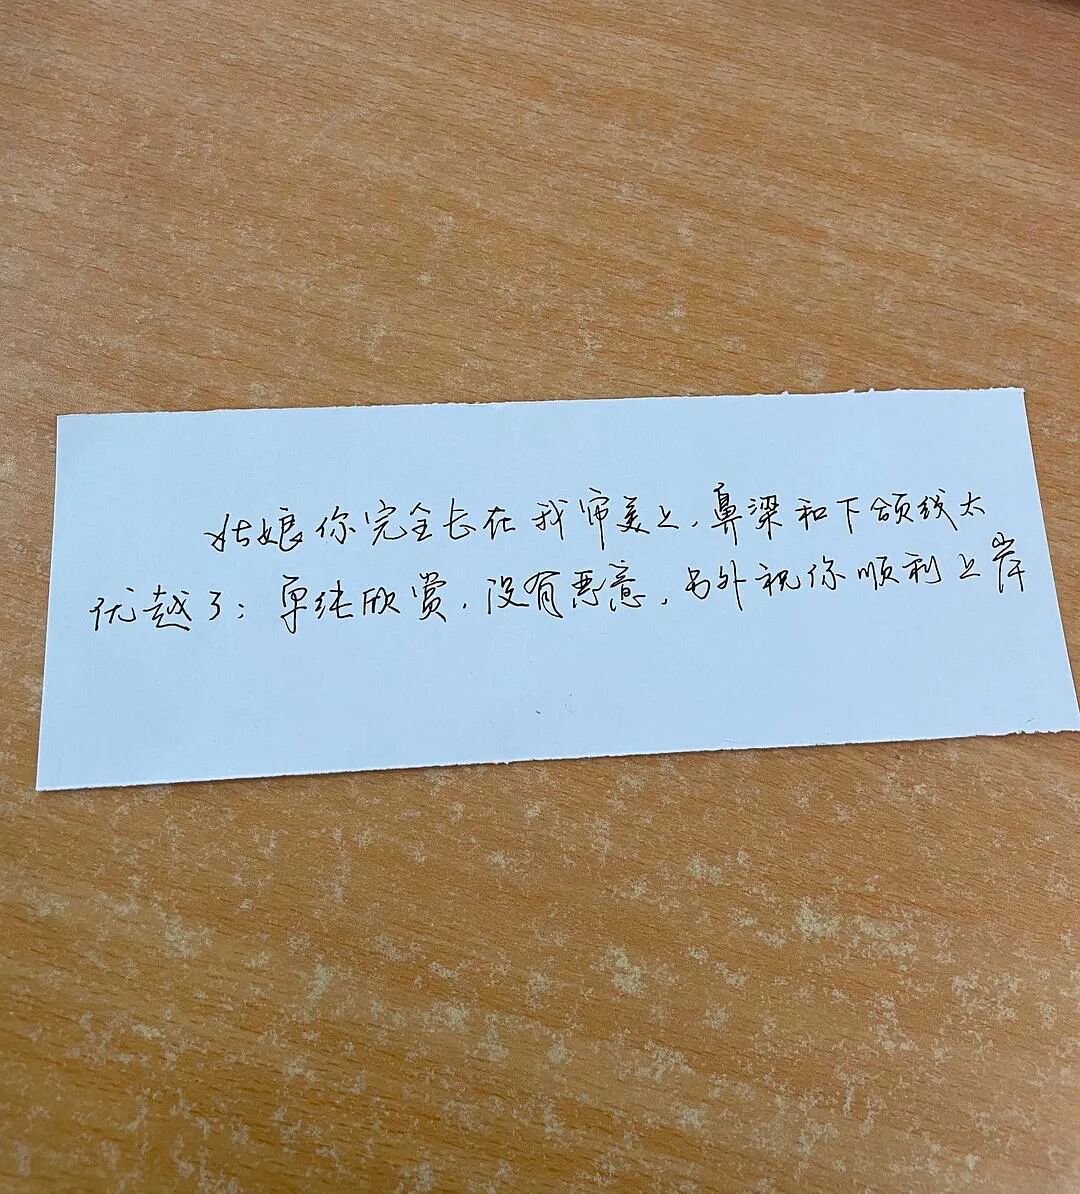 姑娘你完全长在我审美上,鼻梁和下颌线太
优越了;单纯欣赏,没有恶意,另外祝你顺利上岸